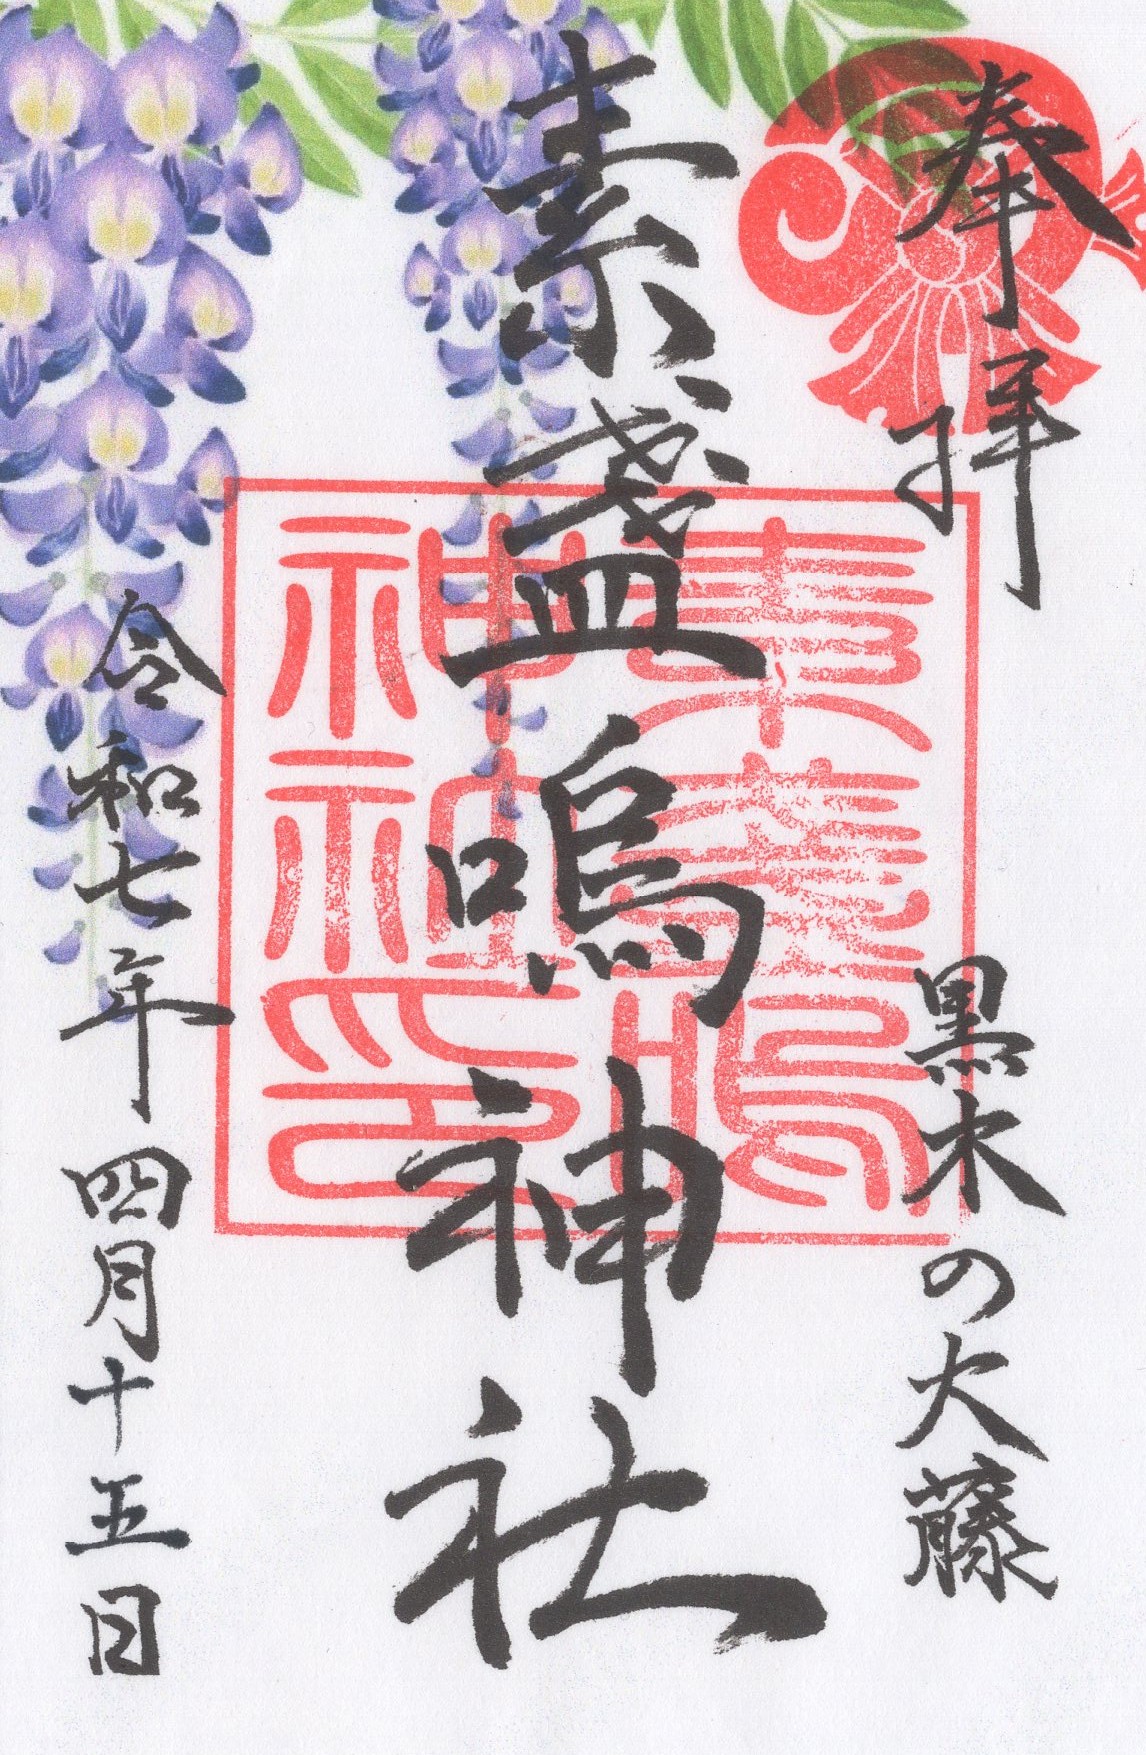 奉拝
黒木の大藤
素盞嗚神社
素盞嗚神社神印
令和七年四月十五日